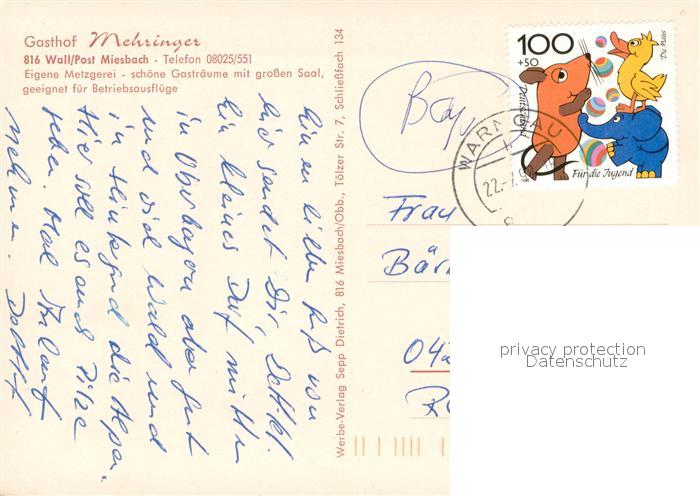 Gasthof Mehringer
816 Wall/Post Miesbach - Telefon 08025/551
Eigene Metzgerei - schöne Gasträume mit großen Saal,
geeignet für Betriebsausflüge
Werbe-Verlag Sepp Dietrich, 816 Miesbach/Obb., Tölzer Str. 7, Schließfach 134
lieben Gruß von
hier sendet Dir,
Ein kleines Dorf mitten
in Oberbayern aber gut
und viel Wald und
im Hintergrund die Alpen.
Hier soll es auch Pilze
geben. Mal
nehmen.
Bay
100
+50
Deutschland
Für die Jugend
Die Maus
WARNGAU
22.
Frau
Bär
042
privacy protection
Datenschutz